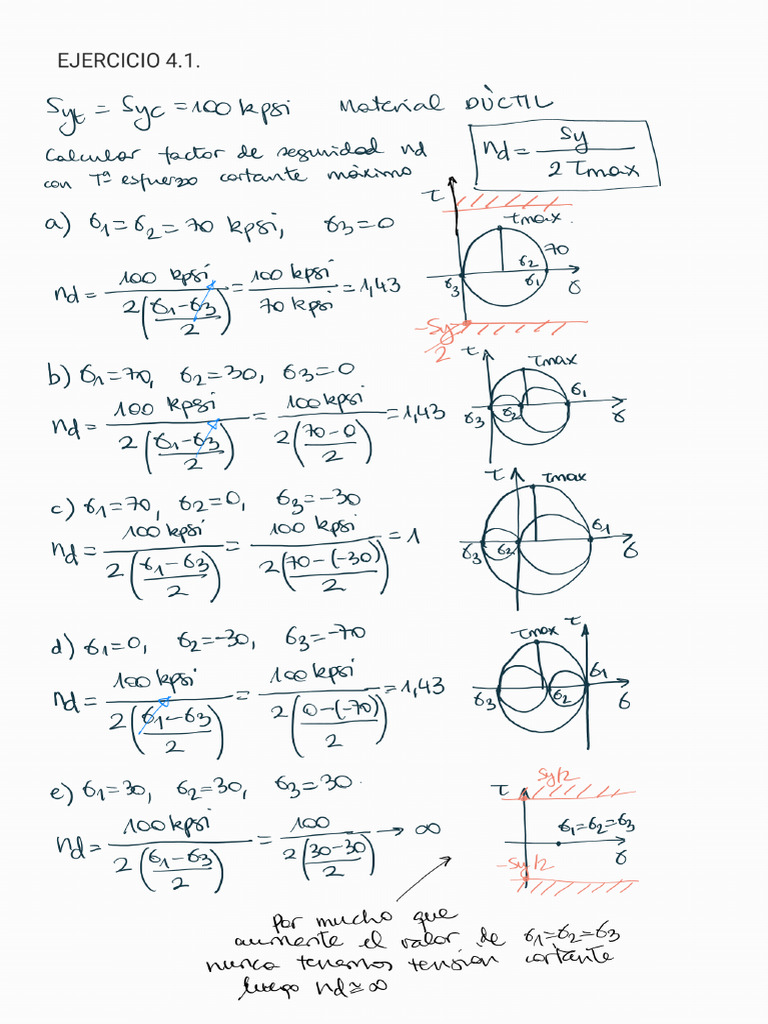 EJERCICIO 4.1.
Syt = Syc = 100 kpsi Material DÚCTIL
Calcular factor de seguridad nd
con Tª esfuerzo cortante máximo
nd = Sy / 2 τmax
a) σ1 = σ2 = 70 kpsi, σ3 = 0
nd = 100 kpsi / 2((σ1-σ3)/2) = 100 kpsi / 70 kpsi = 1,43
τ
τmax.
70
σ2
σ3 σ1 σ
-Sy/2
b) σ1 = 70, σ2 = 30, σ3 = 0
nd = 100 kpsi / 2((σ1-σ3)/2) = 100 kpsi / 2((70-0)/2) = 1,43
τ τmax
σ1
σ3 σ2 σ
c) σ1 = 70, σ2 = 0, σ3 = -30
nd = 100 kpsi / 2((σ1-σ3)/2) = 100 kpsi / 2((70-(-30))/2) = 1
τ τmax
σ1
σ3 σ2 σ
d) σ1 = 0, σ2 = -30, σ3 = -70
nd = 100 kpsi / 2((σ1-σ3)/2) = 100 kpsi / 2((0-(-70))/2) = 1,43
τmax τ
σ1
σ3 σ2 σ
e) σ1 = 30, σ2 = 30, σ3 = 30.
nd = 100 kpsi / 2((σ1-σ3)/2) = 100 / 2((30-30)/2) → ∞
Sy/2
τ
σ1=σ2=σ3
σ
-Sy/2
Por mucho que
aumente el valor de σ1=σ2=σ3
nunca tenemos tensión cortante
luego nd ≃ ∞